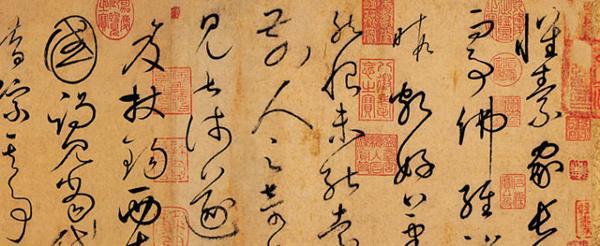 懷素家長
事佛經禪
暇頗好筆
然恨未能遠
前人之奇
見甚淺遂
笈杖錫西
國謁見當代
錯綜其事